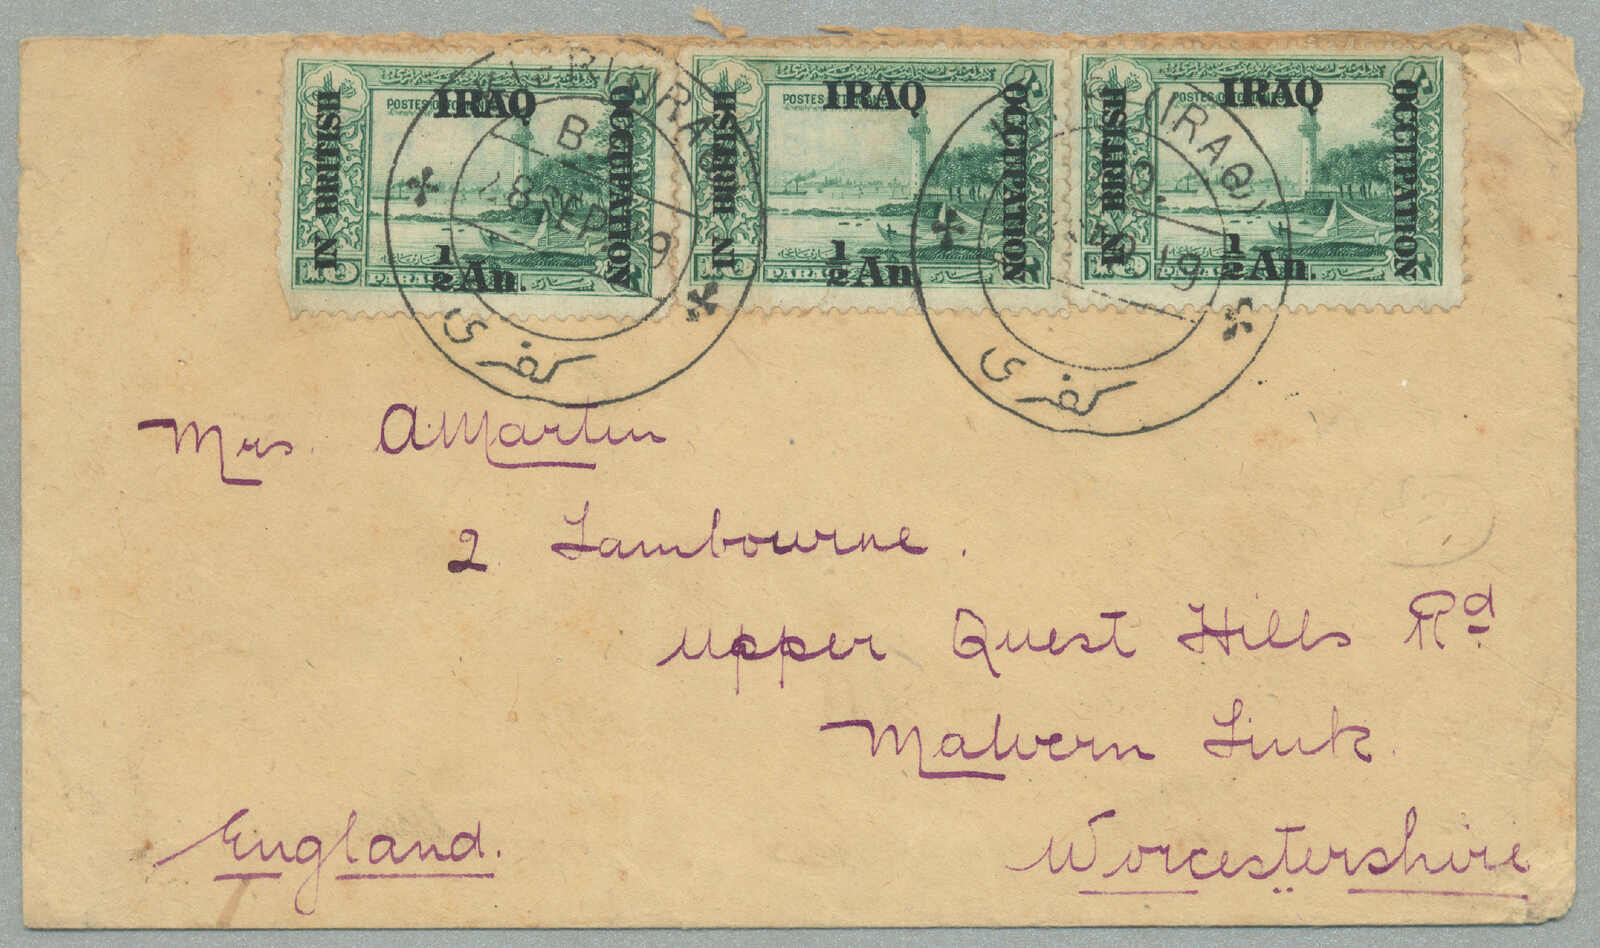 IRAQ
IN BRITISH
OCCUPATION
POSTES
1/2 An.
IRAQ
IN BRITISH
OCCUPATION
POSTES
1/2 An.
IRAQ
IN BRITISH
OCCUPATION
POSTES
1/2 An.
B
28 SEP 19
كفرى
(IRAQ)
B
19
كفرى
Mrs. A. Martin
2 Lambourne.
Upper Quest Hills Rd
Malvern Link.
Worcestershire
England.